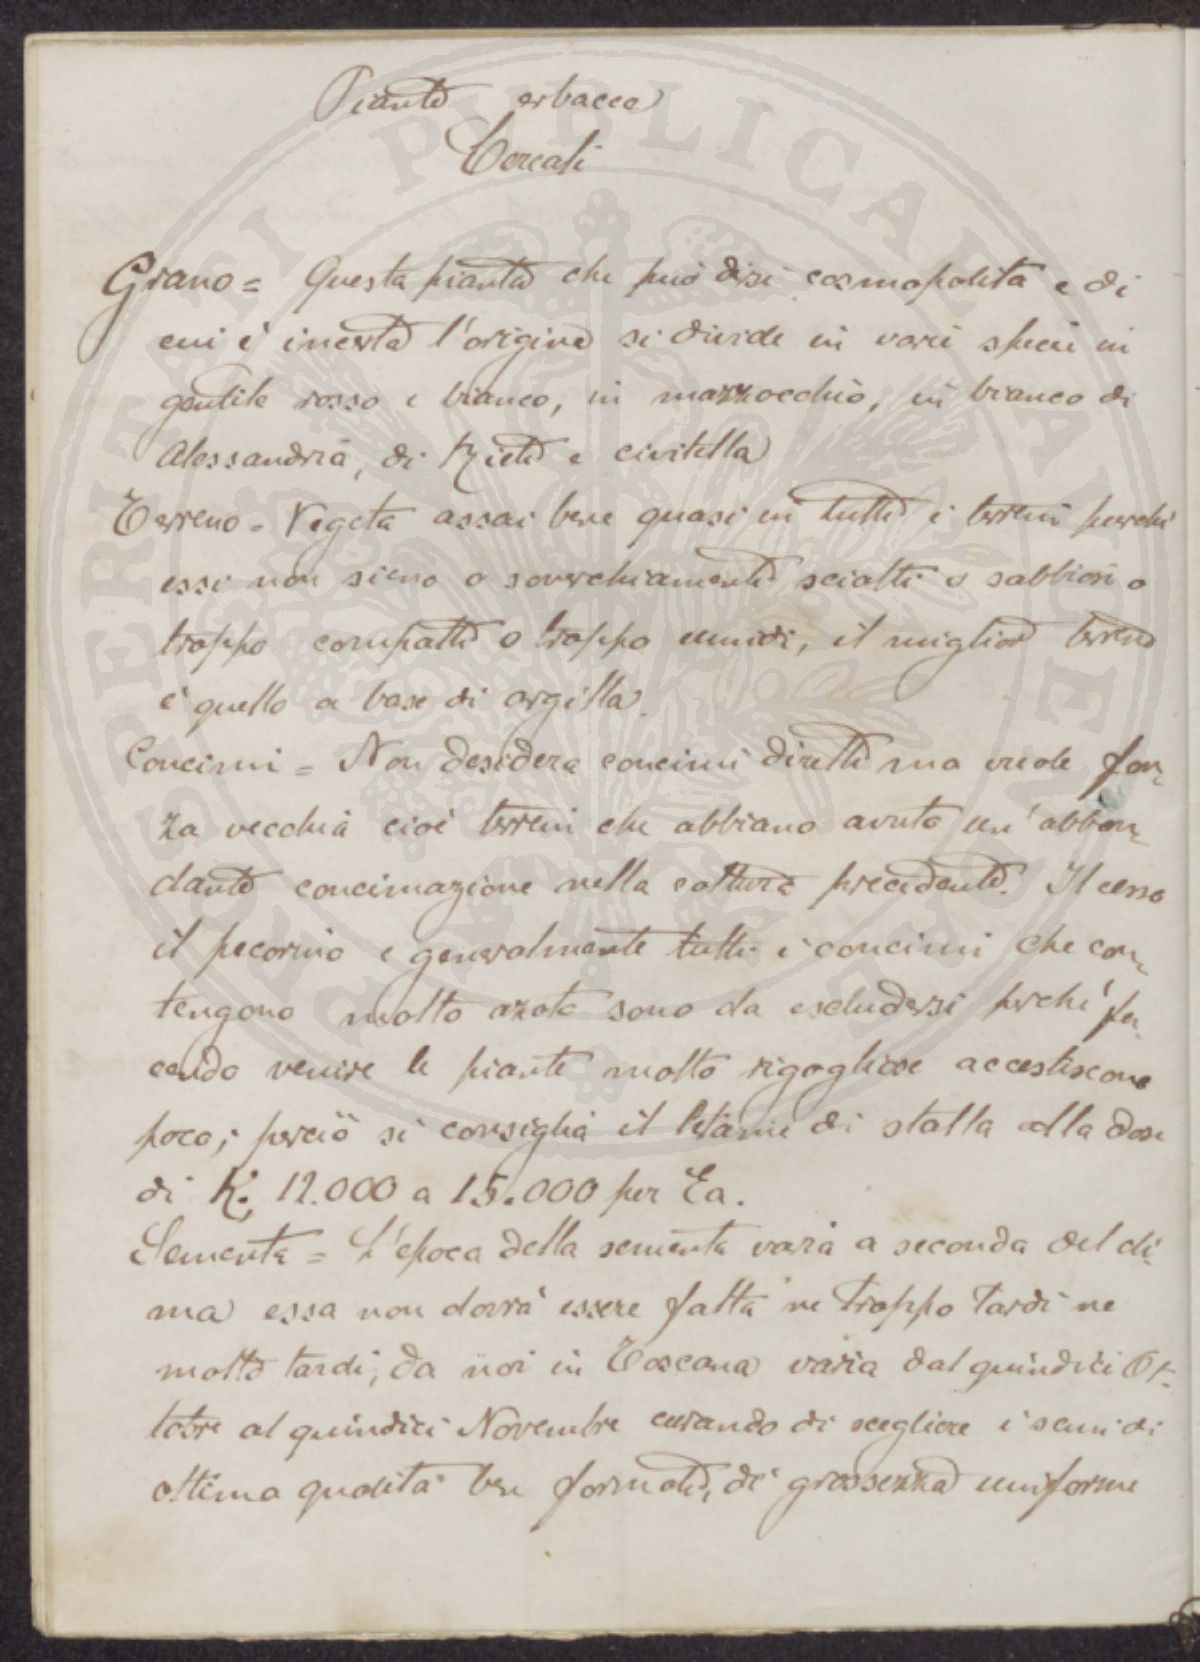 Piante erbacee
Cereali
Grano = Questa pianta che può dirsi cosmopolita e di
cui è incerta l'origine si divide in varie specie in
gentile rosso e bianco, in mazzocchio, in bianco di
Alessandria, di Rieti e civitella
Terreno = Vegeta assai bene quasi in tutti i terreni perchè
essi non sieno o soverchiamente sciolti o sabbiosi o
troppo compatti o troppo umidi, il miglior terreno
è quello a base di argilla.
Concimi = Non desidera concimi diretti ma vuole for-
za vecchia cioè terreni che abbiano avuto un'abbon-
dante concimazione nella coltura precedente. Il cesso
il pecorino e generalmente tutti i concimi che con-
tengono molto azoto sono da escludersi perchè fa-
cendo venire le piante molto rigogliose accestiscono
poco; perciò si consiglia il letame di stalla alla dose
di K. 12.000 a 15.000 per Ea.
Sementa = L'epoca della sementa varia a seconda del cli-
ma essa non dovrà essere fatta ne troppo tardi ne
molto tardi; da noi in Toscana varia dal quindici Ot-
tobre al quindici Novembre curando di scegliere i semi di
ottima qualità ben formati, di grossezza uniforme
PUBLICAE UTILITATI
PROSPERITATI